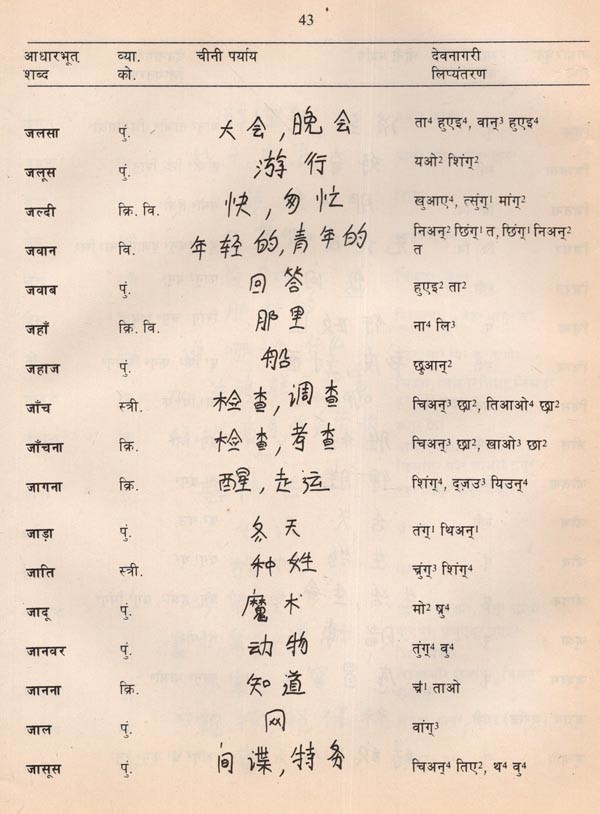 43
आधारभूत् व्या. चीनी पर्याय देवनागरी
शब्द को. लिप्यंतरण
जलसा पुं. 大会,晚会 ता⁴ हुएइ⁴, वान्³ हुएइ⁴
जलूस पुं. 游行 यओ² शिंग्²
जल्दी क्रि. वि. 快,匆忙 खुआए⁴, त्सुंग्¹ मांग्²
जवान वि. 年轻的,青年的 निअन्² छिंग्¹ त, छिंग्¹ निअन्²
त
जवाब पुं. 回答 हुएइ² ता²
जहाँ क्रि. वि. 那里 ना⁴ लि³
जहाज पुं. 船 छुआन्²
जाँच स्त्री. 检查,调查 चिअन्³ छा², तिआओ⁴ छा²
जाँचना क्रि. 检查,考查 चिअन्³ छा², खाओ³ छा²
जागना क्रि. 醒,走运 शिंग्⁴, द्ज़उ³ यिउन्⁴
जाड़ा पुं. 冬天 तंग्¹ थिअन्¹
जाति स्त्री. 种姓 चुंग्³ शिंग्⁴
जादू पुं. 魔术 मो² षु⁴
जानवर पुं. 动物 तुंग्⁴ वु⁴
जानना क्रि. 知道 च¹ ताओ
जाल पुं. 网 वांग्³
जासूस पुं. 间谍,特务 चिअन्⁴ तिए², थ⁴ वु⁴